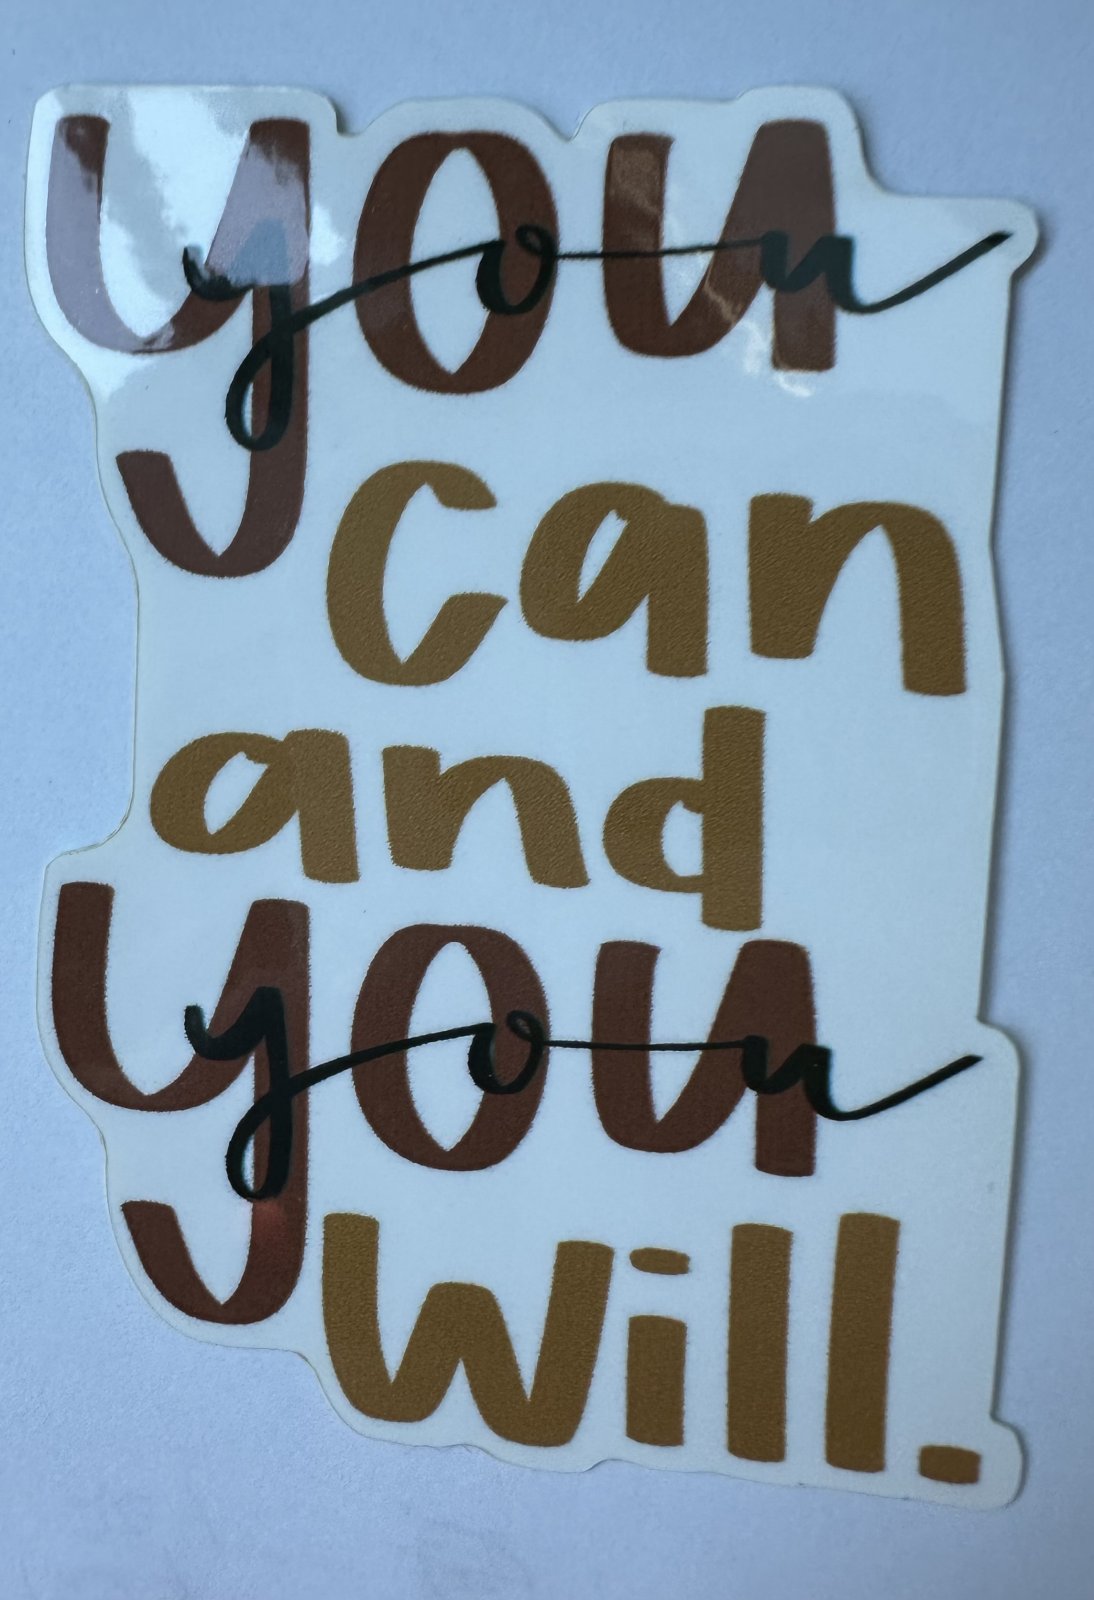 you
you
can
and
you
you
will.